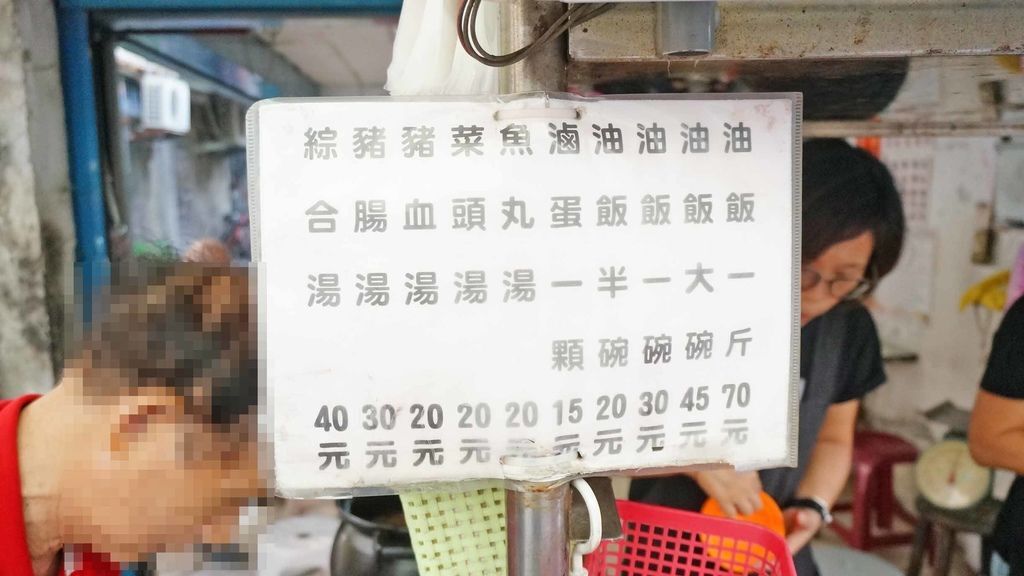 油飯一斤70元
油飯大碗45元
油飯一碗30元
油飯半碗20元
滷蛋一顆15元
魚丸湯20元
菜頭湯20元
豬血湯20元
豬腸湯30元
綜合湯40元